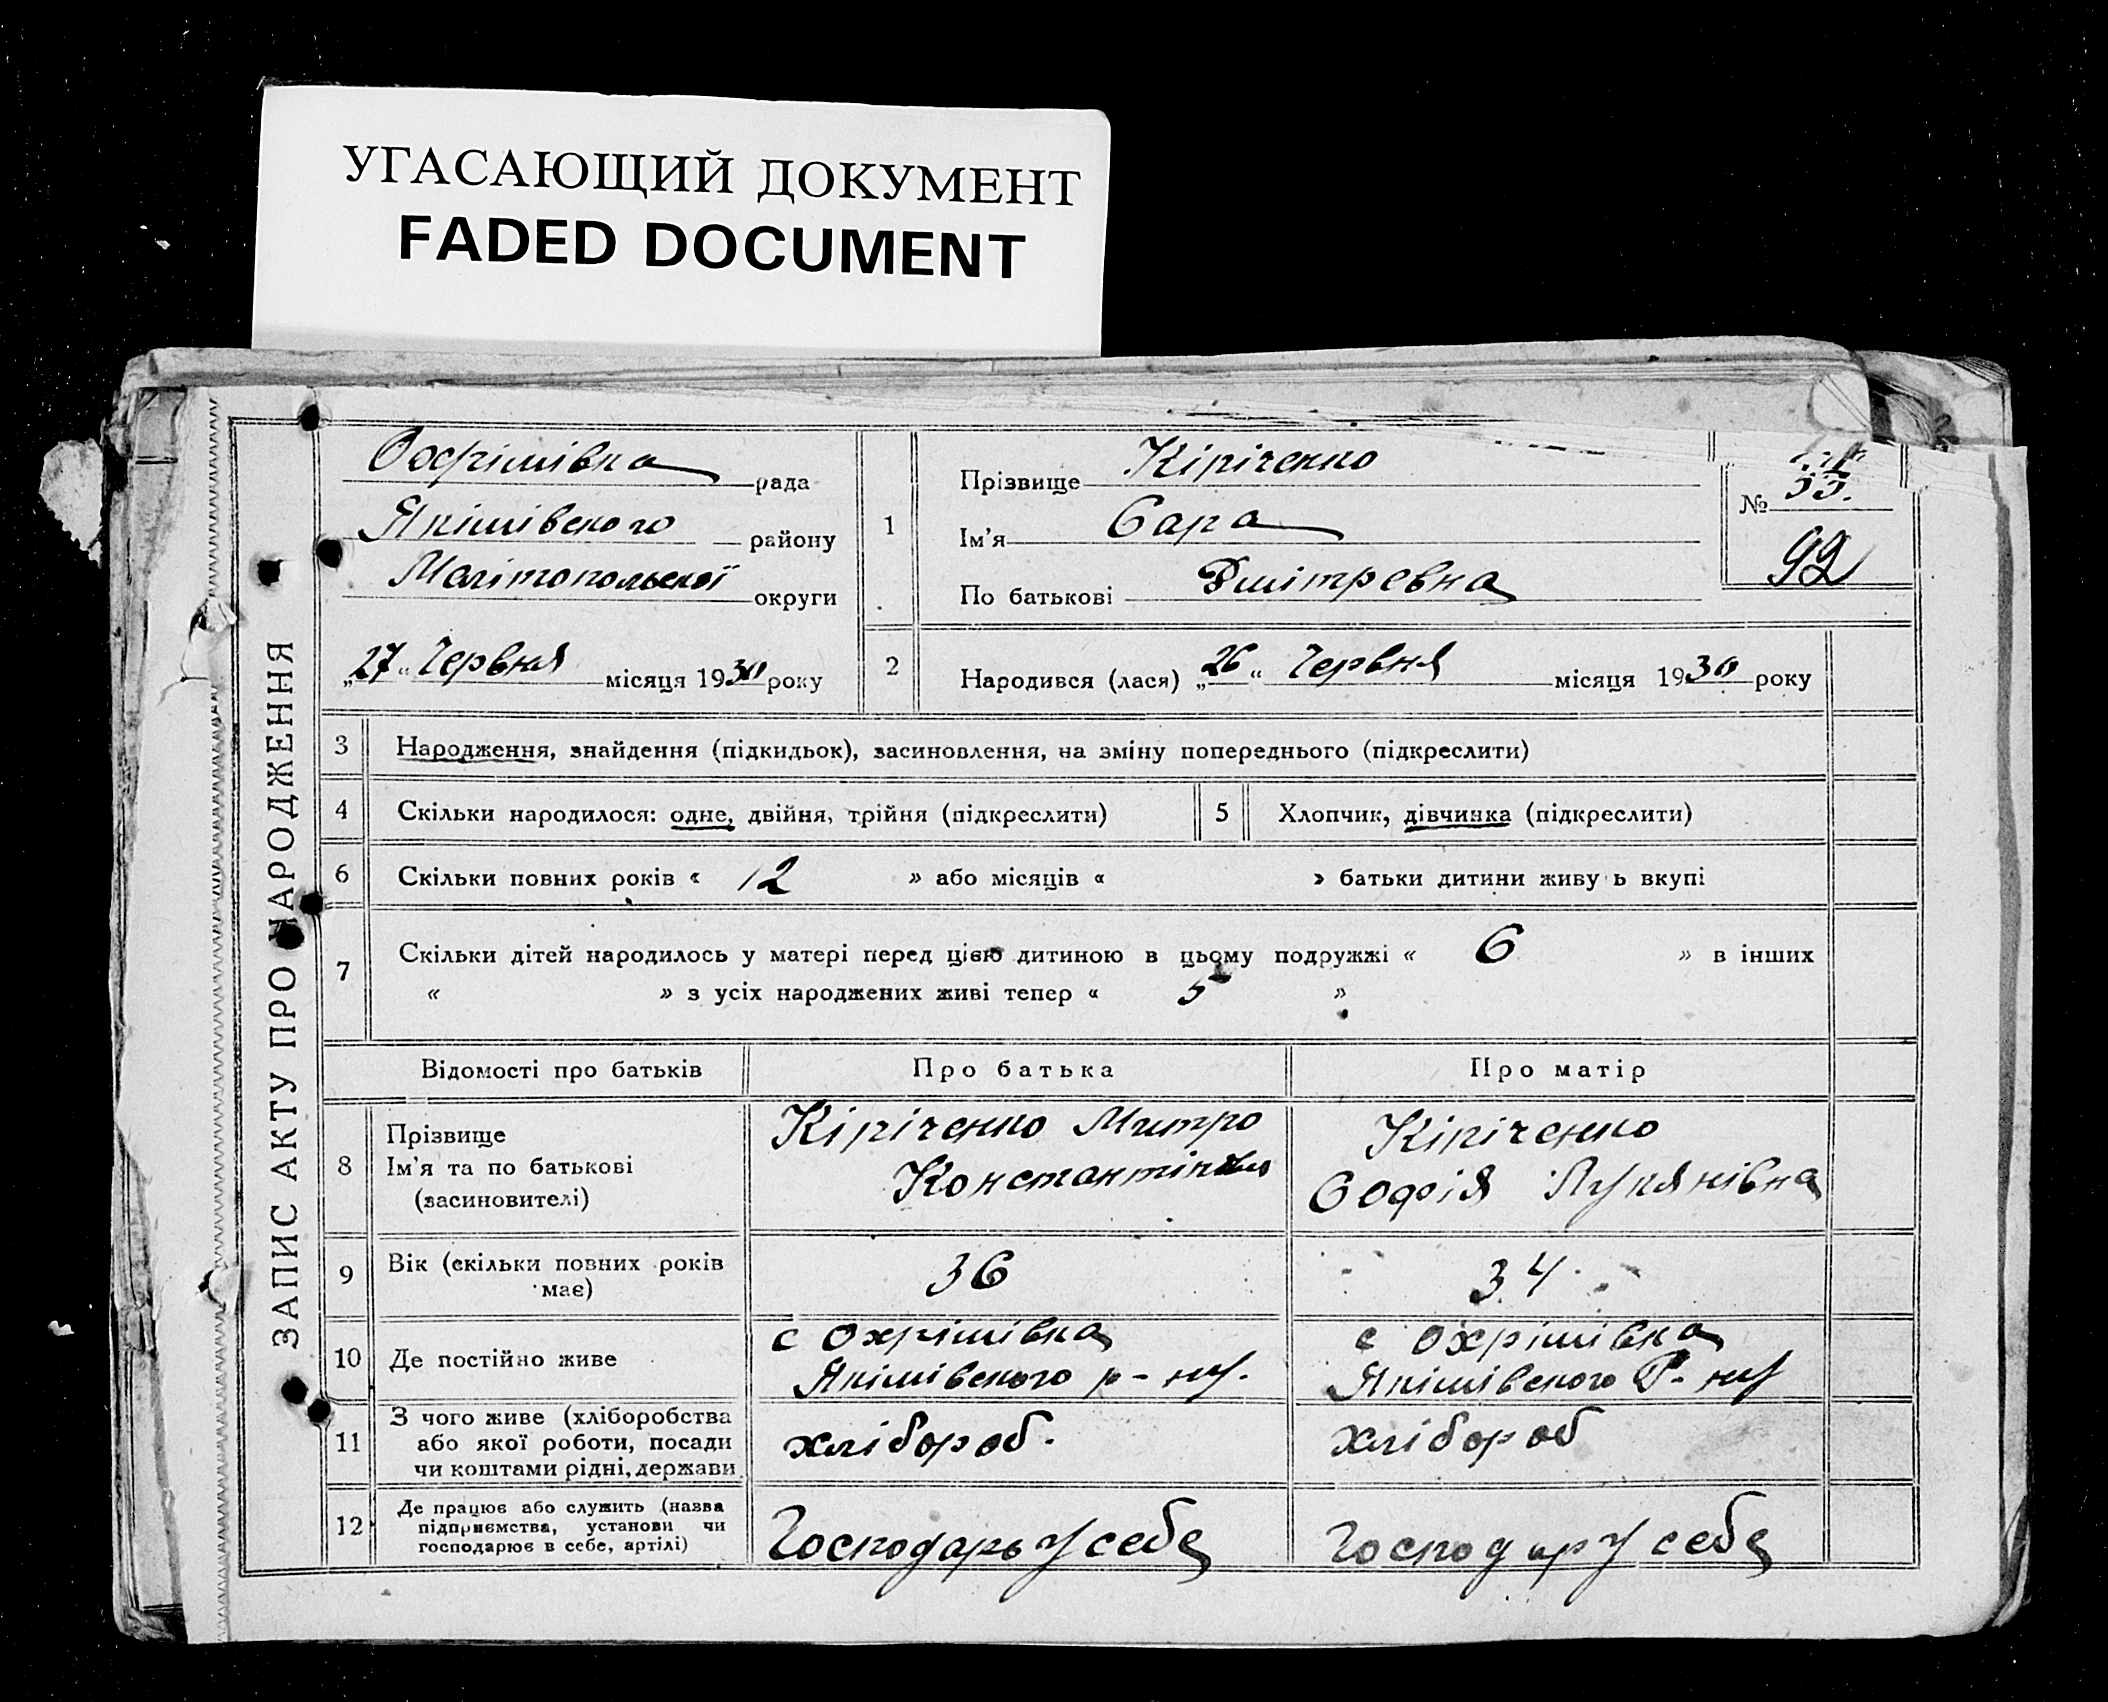 УГАСАЮЩИЙ ДОКУМЕНТ
FADED DOCUMENT
ЗАПИС АКТУ ПРО НАРОДЖЕННЯ
Охрімівка рада
Якімівского району
Мелітопольскої округи
„27“ Червня місяця 1930 року
1
Прізвище Кіріченко
Ім'я Сара
По батькові Дмітревна
№ 55.
92
2
Народився (лася) „26“ Червня місяця 1930 року
3 Народження, знайдення (підкидьок), засиновлення, на зміну попереднього (підкреслити)
4 Скільки народилося: одне, двійня, трійня (підкреслити)
5 Хлопчик, дівчинка (підкреслити)
6 Скільки повних років « 12 » або місяців « » батьки дитини живу ь вкупі
7 Скільки дітей народилось у матері перед цією дитиною в цьому подружжі « 6 » в інших
« » з усіх народжених живі тепер « 5 »
Відомості про батьків
Про батька
Про матір
8
Прізвище
Ім'я та по батькові
(засиновителі)
Кіріченко Митро
Константінов
Кіріченко
Софія Лукянівна
9
Вік (скільки повних років
має)
36
34
10 Де постійно живе
с Охрімівка
Якімівского р-ну.
с Охрімівка
Якімівского Р-ну
11
З чого живе (хліборобства
або якої роботи, посади
чи коштами рідні, держави
хлібороб.
хлібороб
12
Де працює або служить (назва
підприємства, установи чи
господарює в себе, артілі)
Господарь у себе
Господар у себе